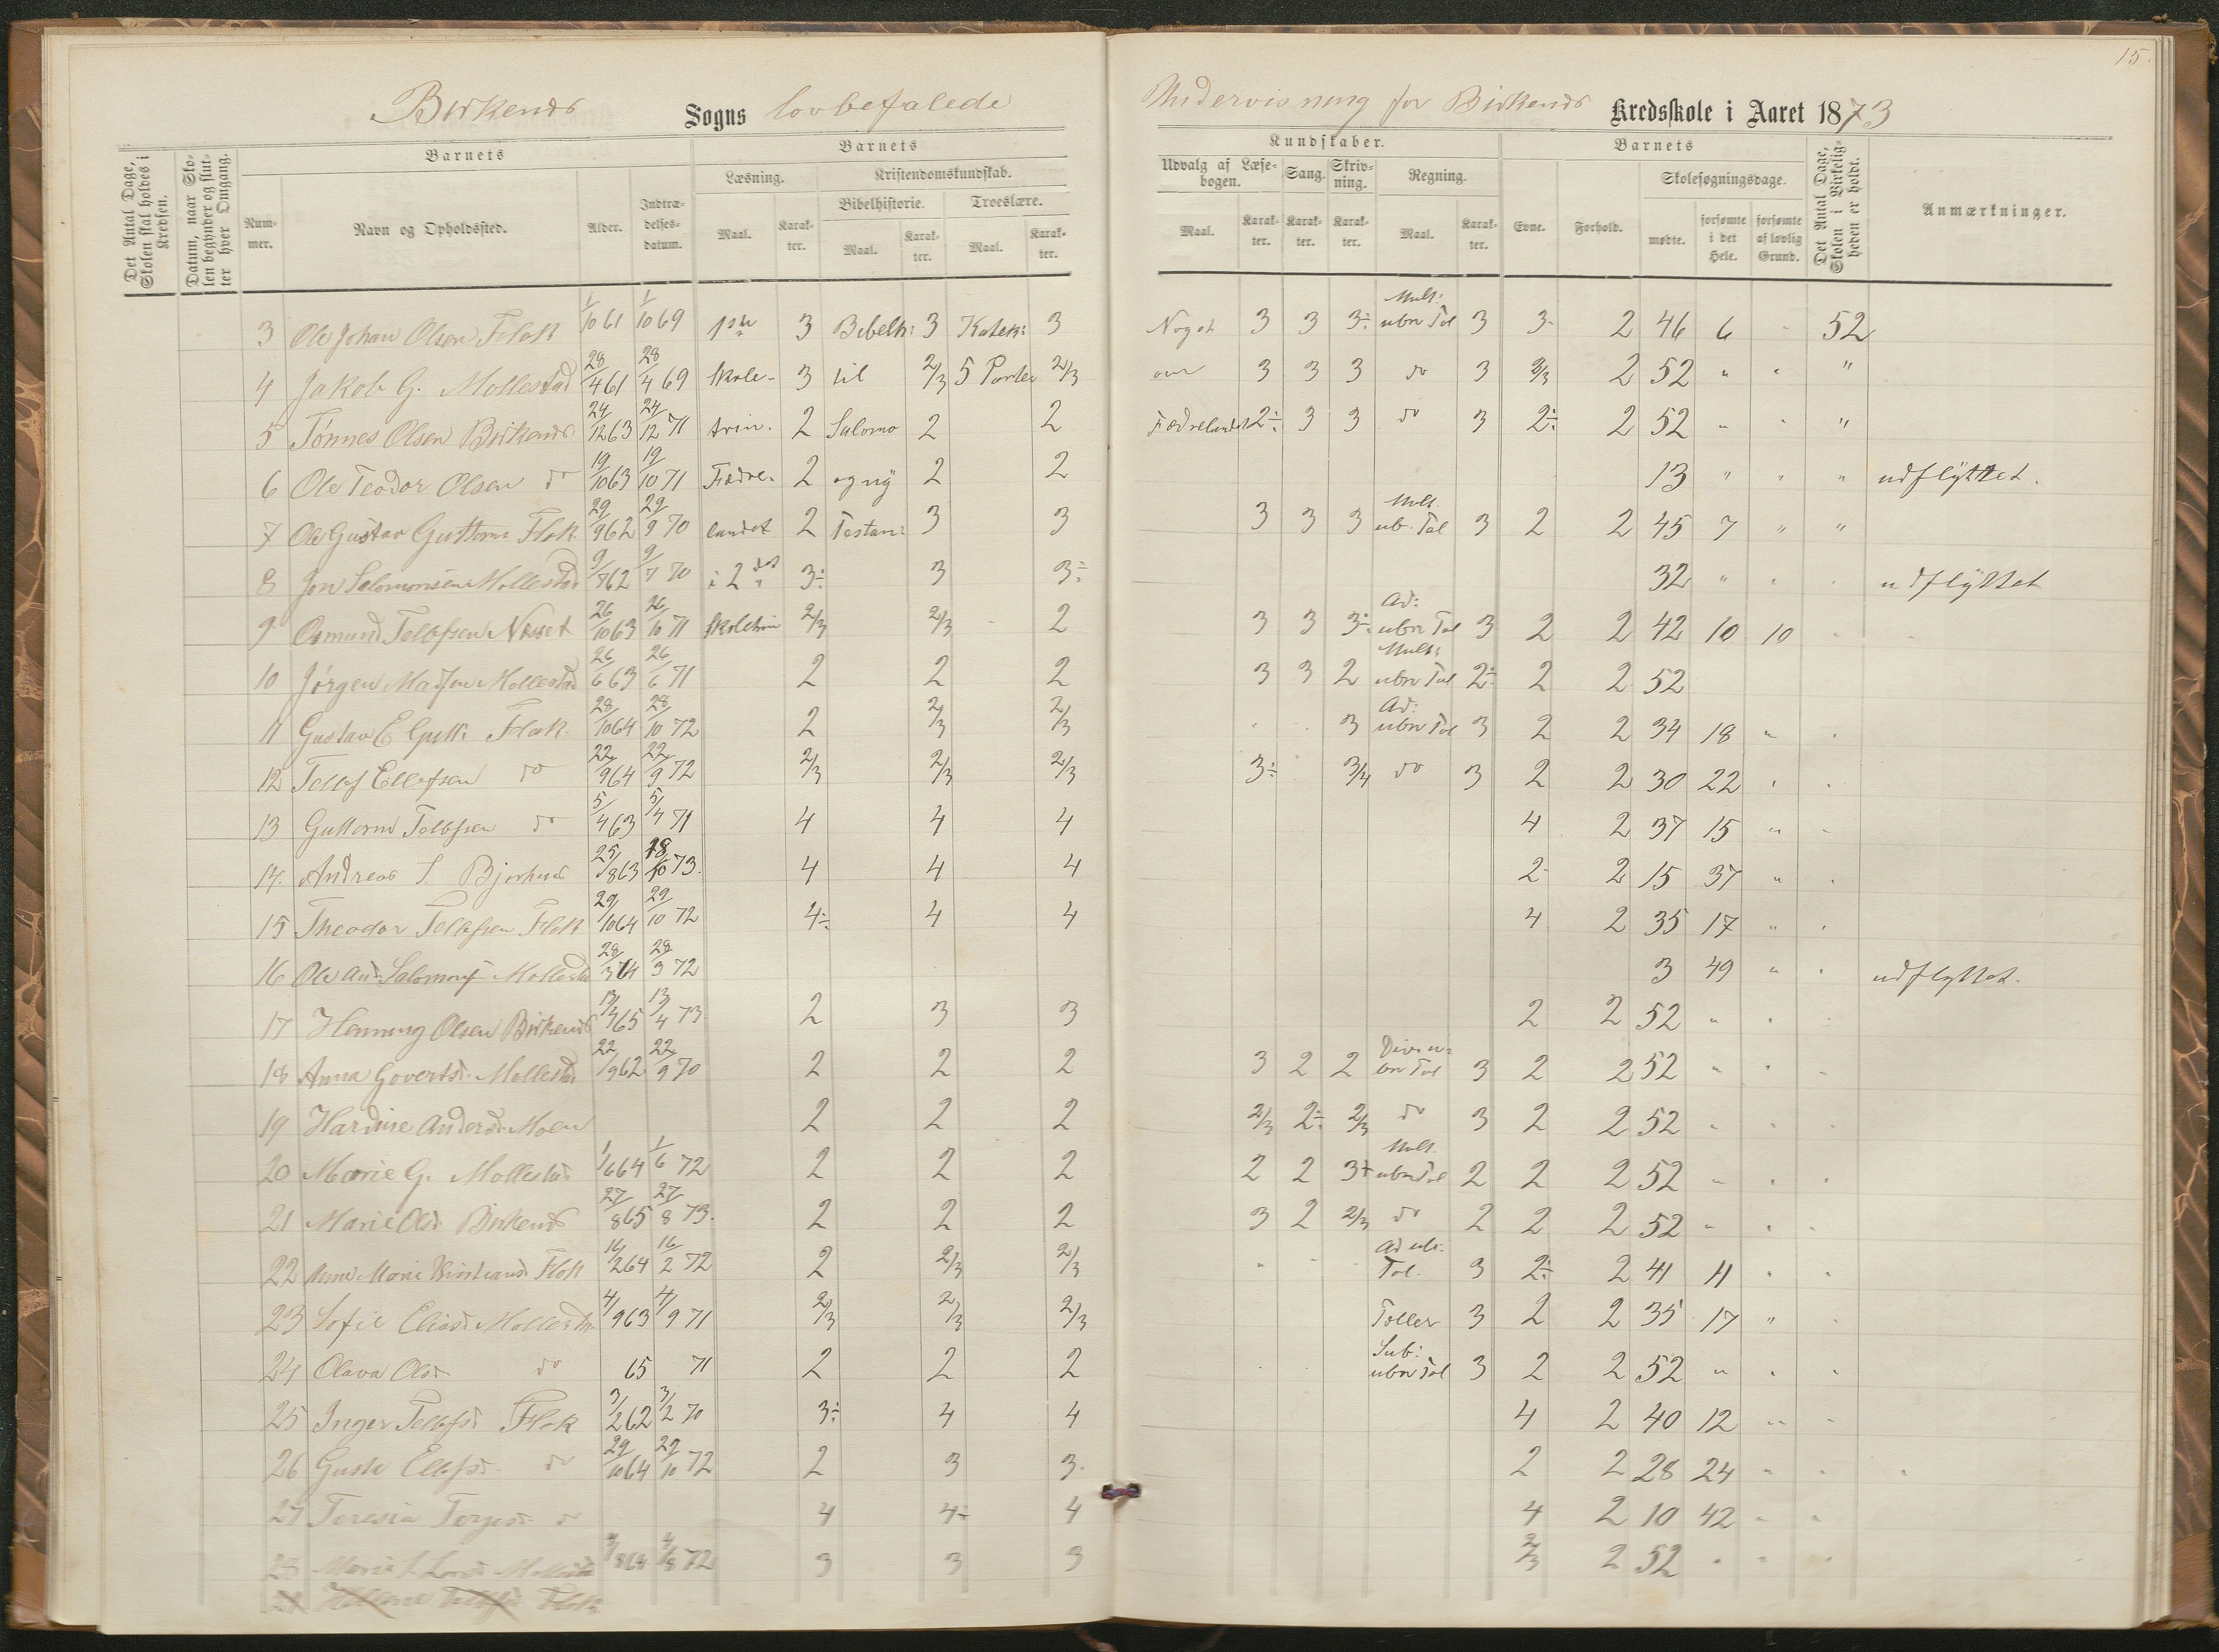 15.
Birkenes Sogns lovbefalede Undervisning for Birkenes Kredsskole i Aaret 1873
Det Antal Dage, Skolen skal holdes i Kredsen.
Datum, naar Skolen begynder og slutter hver Omgang.
Barnets
Nummer.
Navn og Opholdssted.
Alder.
Indtrædelsesdatum.
Barnets
Læsning.
Maal.
Karakter.
Kristendomskundskab.
Bibelhistorie.
Maal.
Karakter.
Troeslære.
Maal.
Karakter.
Kundskaber.
Udvalg af Læsebogen.
Maal.
Karakter.
Sang.
Karakter.
Skrivning.
Karakter.
Regning.
Maal.
Karakter.
Barnets
Evne.
Forhold.
Skolesøgningsdage.
mødte.
forsømte i det Hele.
forsømte af lovlig Grund.
Det Antal Dage, Skolen i Virkeligheden er holdt.
Anmærkninger.
3 Ole Johan Olsen Flak 1/10 61 1/10 69 1ste 3 Bibelh: 3 Katek: 3 Noget 3 3 3÷ Mult: ubn Tal 3 3- 2 46 6 52
4 Jakob G. Mollestad 28/4 61 28/4 69 Skole- 3 til 2/3 5 Parter 2/3 om 3 3 3 do 3 2/3 2 52 " " "
5 Tønnes Olsen Birkenes 24/12 63 24/12 71 trin. 2 Salomo 2 2 Fædrelandet 2÷ 3 3 do 3 2÷ 2 52 " " "
6 Ole Teodor Olsen do 19/10 63 19/10 71 Fædre- 2 og ny 2 2 13 " " " udflyttet.
7 Ole Gustav Guttorms Flak 29/9 62 29/9 70 landet 2 Testam: 3 3 3 3 3 Mult. ub. Tal 3 2 2 45 7 " "
8 Jon Salomonsen Mollestad 9/7 62 9/7 70 i 2det 3÷ 3 3÷ 32 " " udflyttet
9 Osmund Tellefsen Næset 26/10 63 26/10 71 Skoletrin 2/3 2/3 2 3 3 3÷ Ad: ubn Tal 3 2 2 42 10 10
10 Jørgen Madsen Mollestad 26/6 63 26/6 71 2 2 2 3 3 2 Mult: ubn Tal 2÷ 2 2 52
11 Gustav E Gutt: Flak. 28/10 64 28/10 72 2 2/3 2/3 3 Ad: ubn Tal 3 2 2 34 18 "
12 Tellef Ellefsen do 22/9 64 22/9 72 2/3 2/3 2/3 3÷ 3/4 do 3 2 2 30 22
13 Guttorm Tellefsen do 5/4 63 5/4 71 4 4 4 4 2 37 15 "
14. Andreas S. Bjorhus 25/8 63 18/10 73. 4 4 4 2 2 15 37 "
15 Theodor Tellefsen Flak 29/10 64 29/10 72 4÷ 4 4 4 2 35 17 "
16 Ole And: Salomons Mollestad 28/3 64 28/3 72 3 49 " udflyttet.
17 Henning Olsen Birkenes 13/4 65 13/4 73 2 3 3 2 2 52 "
18 Anna Govertsd. Mollestad 22/9 62 22/9 70 2 2 2 3 2 2 3 2 2 52 "
19 Hardine Andersd. Moen 2 2 2 2/3 2÷ 2/3 do 3 2 2 52
20 Marie G. Mollestad 1/6 64 1/6 72 2 2 2 2 2 3+ Mult. ubn Tal 2 2 2 52
21 Marie Olsd. Birkenes 27/8 65 27/8 73. 2 2 2 3 2 2/3 do 2 2 2 52
22 Anne Marie Kristiansd. Flak 16/2 64 16/2 72 2 2/3 2/3 Ad ub: Tal. 3 2÷ 2 41 11
23 Sofie Eliasd. Mollestad 4/9 63 4/9 71 2/3 2/3 2/3 Taller 3 2 2 35 17 "
24 Olava Olsd. do 65 71 2 2 2 Sub: ubn Tal 3 2 2 52 "
25 Inger Tellefsd. Flak 3/2 62 3/2 70 3÷ 4 4 4 2 40 12 "
26 Gusta Ellefsd. do 29/10 64 29/10 72 2 3 3. 2 2 28 24
27 Teresia Terjesd. do 4 4÷ 4 4 2 10 42
28 Marie Mollestad 8 64 8 72 3 3 3 2/3 2 52
Tellefsd Flak